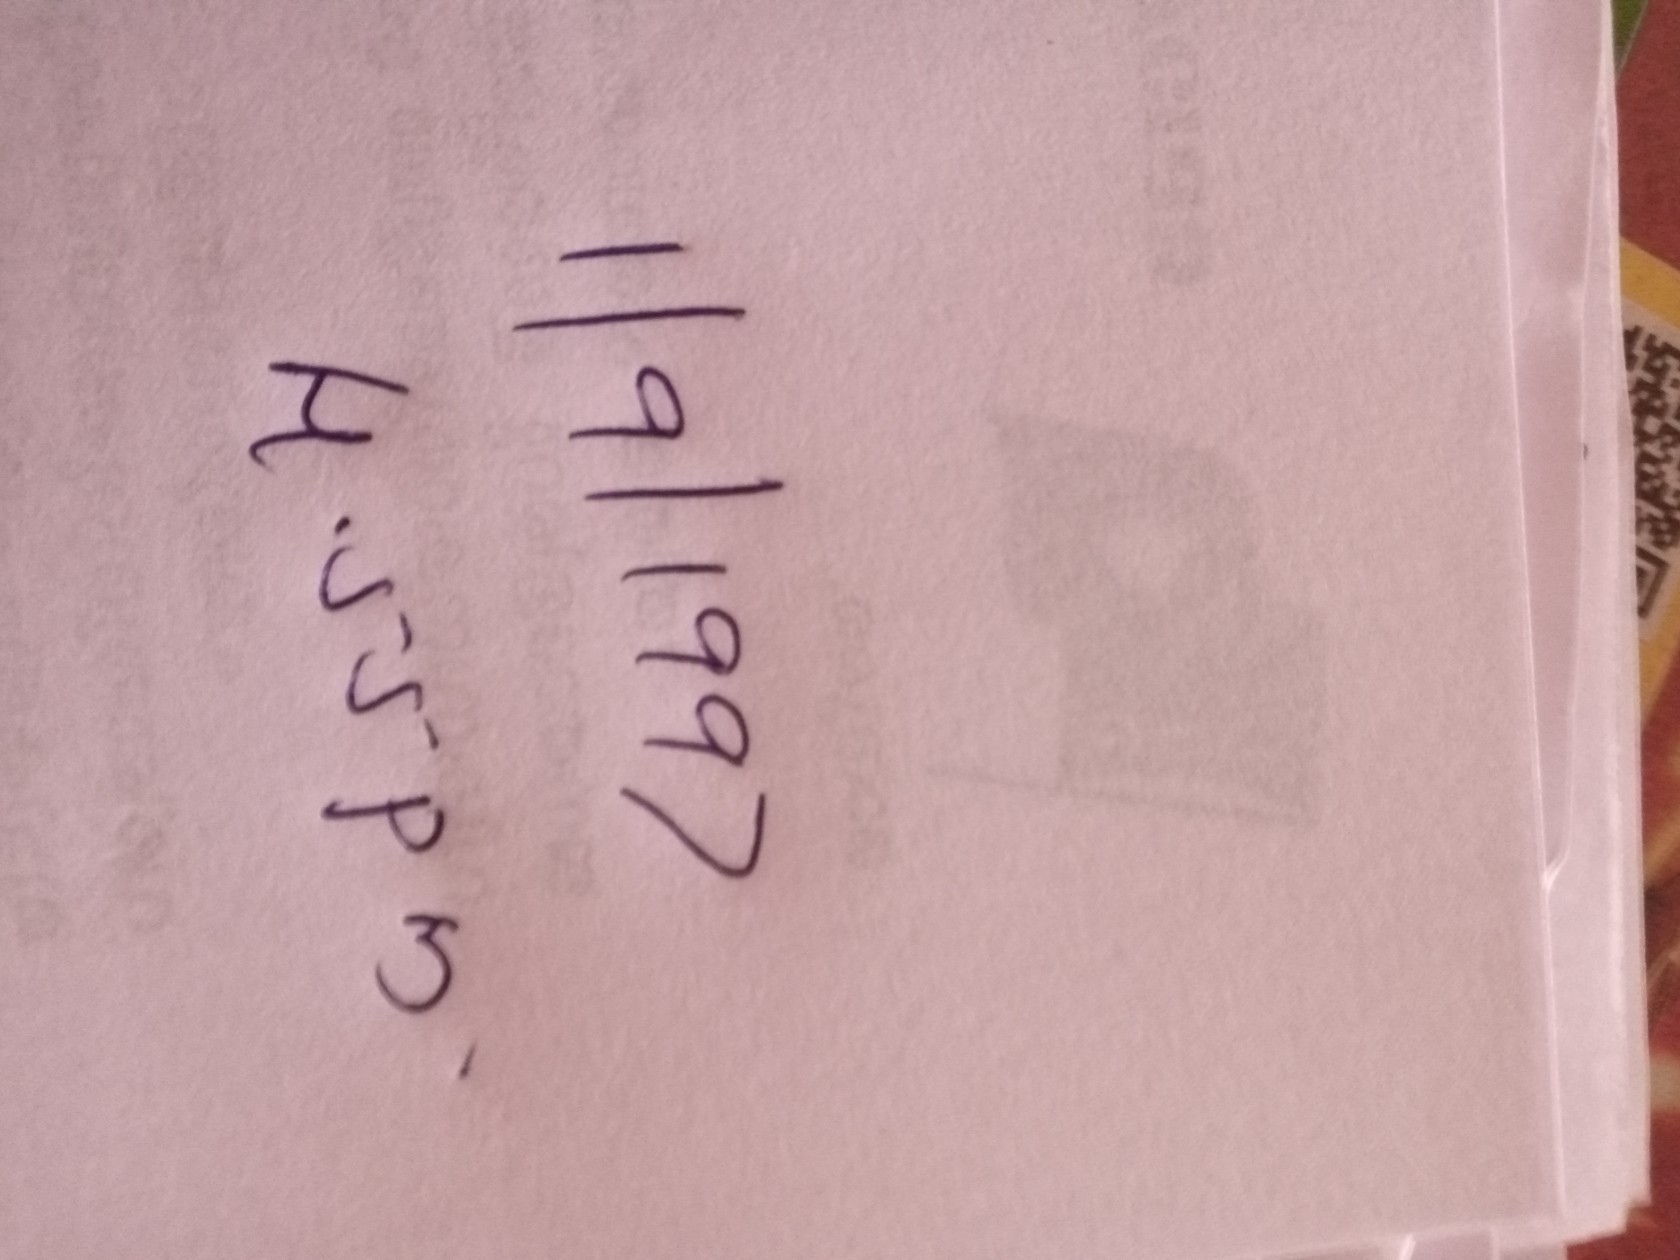 1/9/1997
4.55 pm.